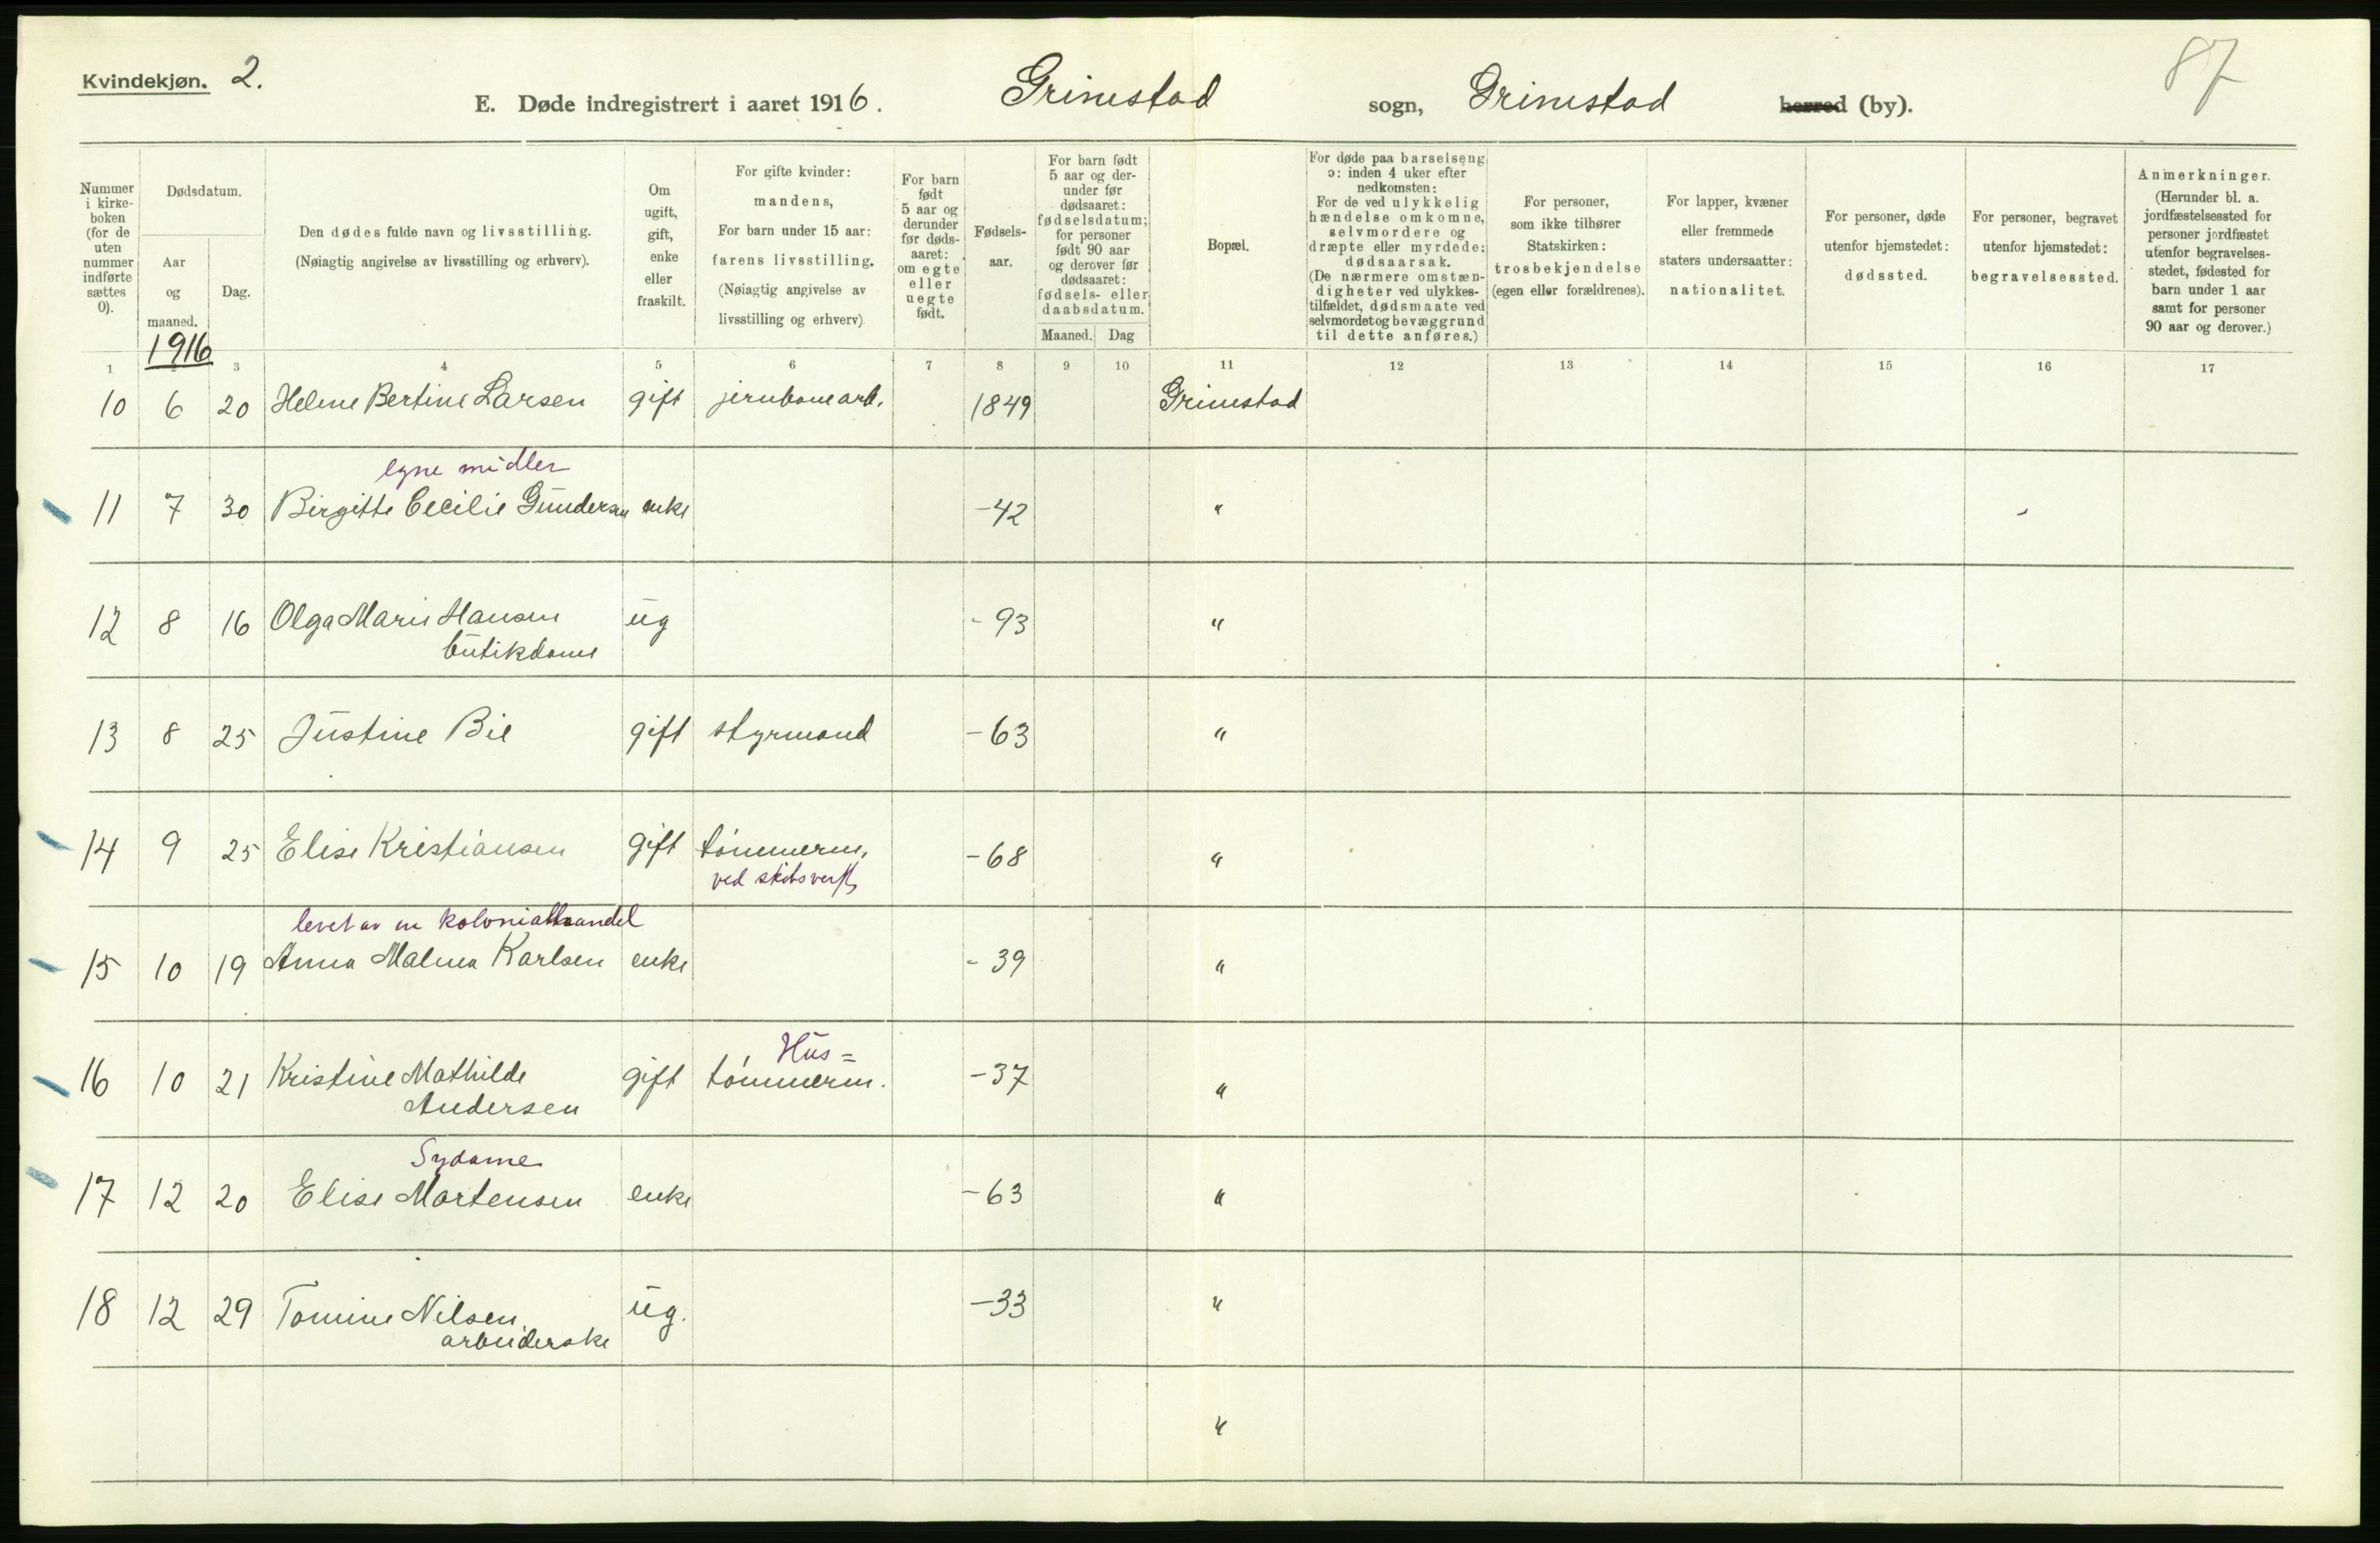 Kvindekjøn. 2.
87
E. Døde indregistrert i aaret 1916. Grimstad sogn, Grimstad herred (by).
Nummer i kirkeboken (for de uten nummer indførte sættes 0).
Dødsdatum.
Aar og maaned.
Dag.
Den dødes fulde navn og livsstilling.
(Nøiagtig angivelse av livsstilling og erhverv).
Om ugift, gift, enke eller fraskilt.
For gifte kvinder: mandens, For barn under 15 aar: farens livsstilling. (Nøiagtig angivelse av livsstilling og erhverv)
For barn født 5 aar og derunder før dødsaaret: om egte eller uegte født.
Fødselsaar.
For barn født 5 aar og derunder før dødsaaret: fødselsdatum; for personer født 90 aar og derover før dødsaaret: fødsels- eller daabsdatum.
Maaned. Dag
Bopæl.
For døde paa barselseng ɔ: inden 4 uker efter nedkomsten: For de ved ulykkelig hændelse omkomne, selvmordere og dræpte eller myrdede: dødsaarsak. (De nærmere omstændigheter ved ulykkestilfældet, dødsmaate ved selvmordet og bevæggrund til dette anføres.)
For personer, som ikke tilhører Statskirken: trosbekjendelse (egen eller forældrenes).
For lapper, kvæner eller fremmede staters undersaatter: nationalitet.
For personer, døde utenfor hjemstedet: dødssted.
For personer, begravet utenfor hjemstedet: begravelsessted.
Anmerkninger. (Herunder bl. a. jordfæstelsessted for personer jordfæstet utenfor begravelsesstedet, fødested for barn under 1 aar samt for personer 90 aar og derover.)
1916
1 2 3 4 5 6 7 8 9 10 11 12 13 14 15 16 17
10 6 20 Helene Bertine Larsen gift jernbanearb. 1849 Grimstad
egne midler
11 7 30 Birgitte Cecilie Gundersen enke -42 "
12 8 16 Olga Marie Hansen ug -93 "
butikdame
13 8 25 Justine Bie gift styrmand -63 "
14 9 25 Elise Kristiansen gift tømmerm. -68 "
ved skibsverft
levet av en kolonialhandel
15 10 19 Anna Malena Karlsen enke -39 "
Hus=
16 10 21 Kristine Mathilde gift tømmerm. -37 "
Andersen
Sydame
17 12 20 Elise Martensen enke -63 "
18 12 29 Tomine Nilsen ug. -33 "
arbeiderske
"